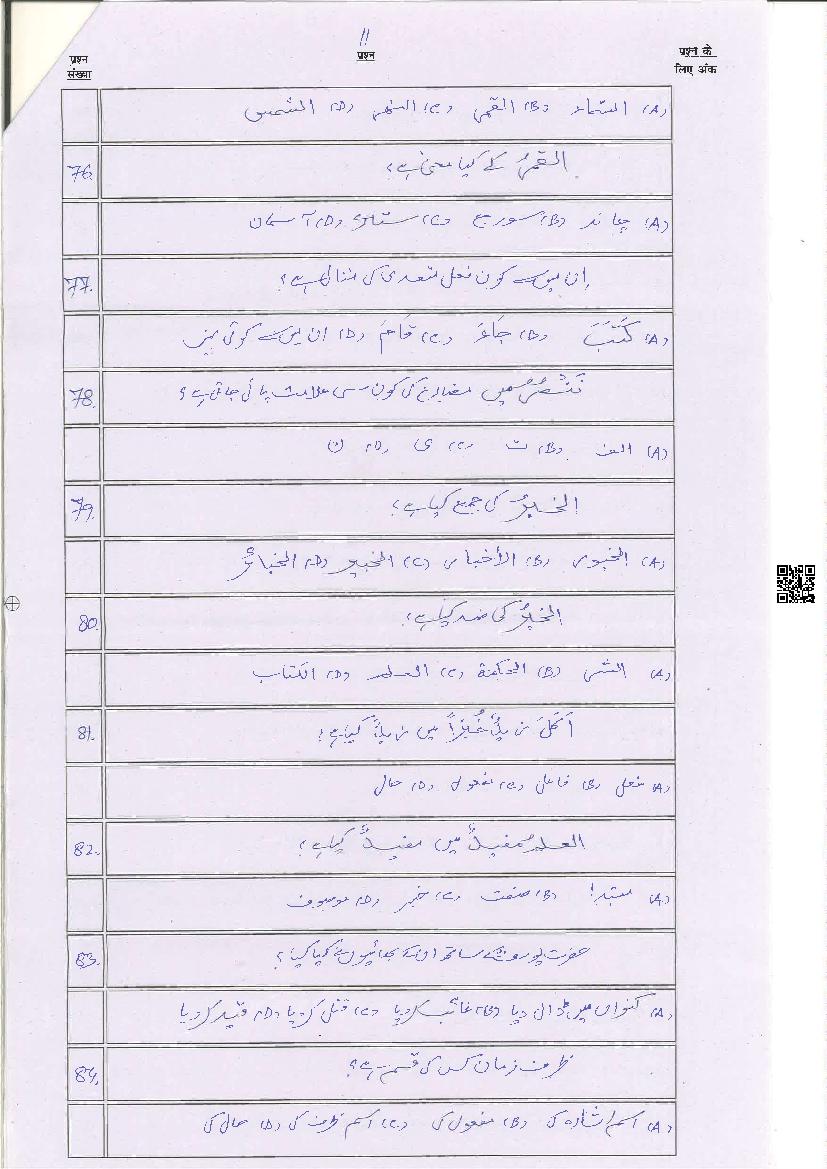 11
प्रश्न संख्या
प्रश्न
प्रश्न के लिए अंक
(A) السّماء (B) القمر (C) النهر (D) الشمس
76. القمرُ کے کیا معنی ہے؟
(A) چاند (B) سورج (C) ستارے (D) آسمان
77. ان میں سے کون فعل متعدی کی مثال ہے؟
(A) كَتَبَ (B) جَاءَ (C) قَامَ (D) ان میں سے کوئی نہیں
78. نَنْصُرُ میں مضارع کی کون سی علامت پائی جاتی ہے؟
(A) الف (B) ت (C) ی (D) ن
79. الخبرُ کی جمع کیا ہے؟
(A) الخبور (B) الأخبار (C) الخبير (D) الخبائر
80. الخيرُ کی ضد کیا ہے؟
(A) الشر (B) الحكمة (C) العلم (D) الكتاب
81. اَكَلَ زيدٌ خُبْزاً میں زیدٌ کیا ہے؟
(A) فعل (B) فاعل (C) مفعول (D) حال
82. العلمُ مفيدٌ میں مفیدٌ کیا ہے؟
(A) مبتدا (B) صفت (C) خبر (D) موصوف
83. حضرت یوسف کے ساتھ ان کے بھائیوں نے کیا کیا؟
(A) کنواں میں ڈال دیا (B) غائب کر دیا (C) قتل کر دیا (D) قید کر دیا
84. ظرف زمان کس کی قسم ہے؟
(A) اسم اشارہ کی (B) مفعول کی (C) اسم ظرف کی (D) حال کی